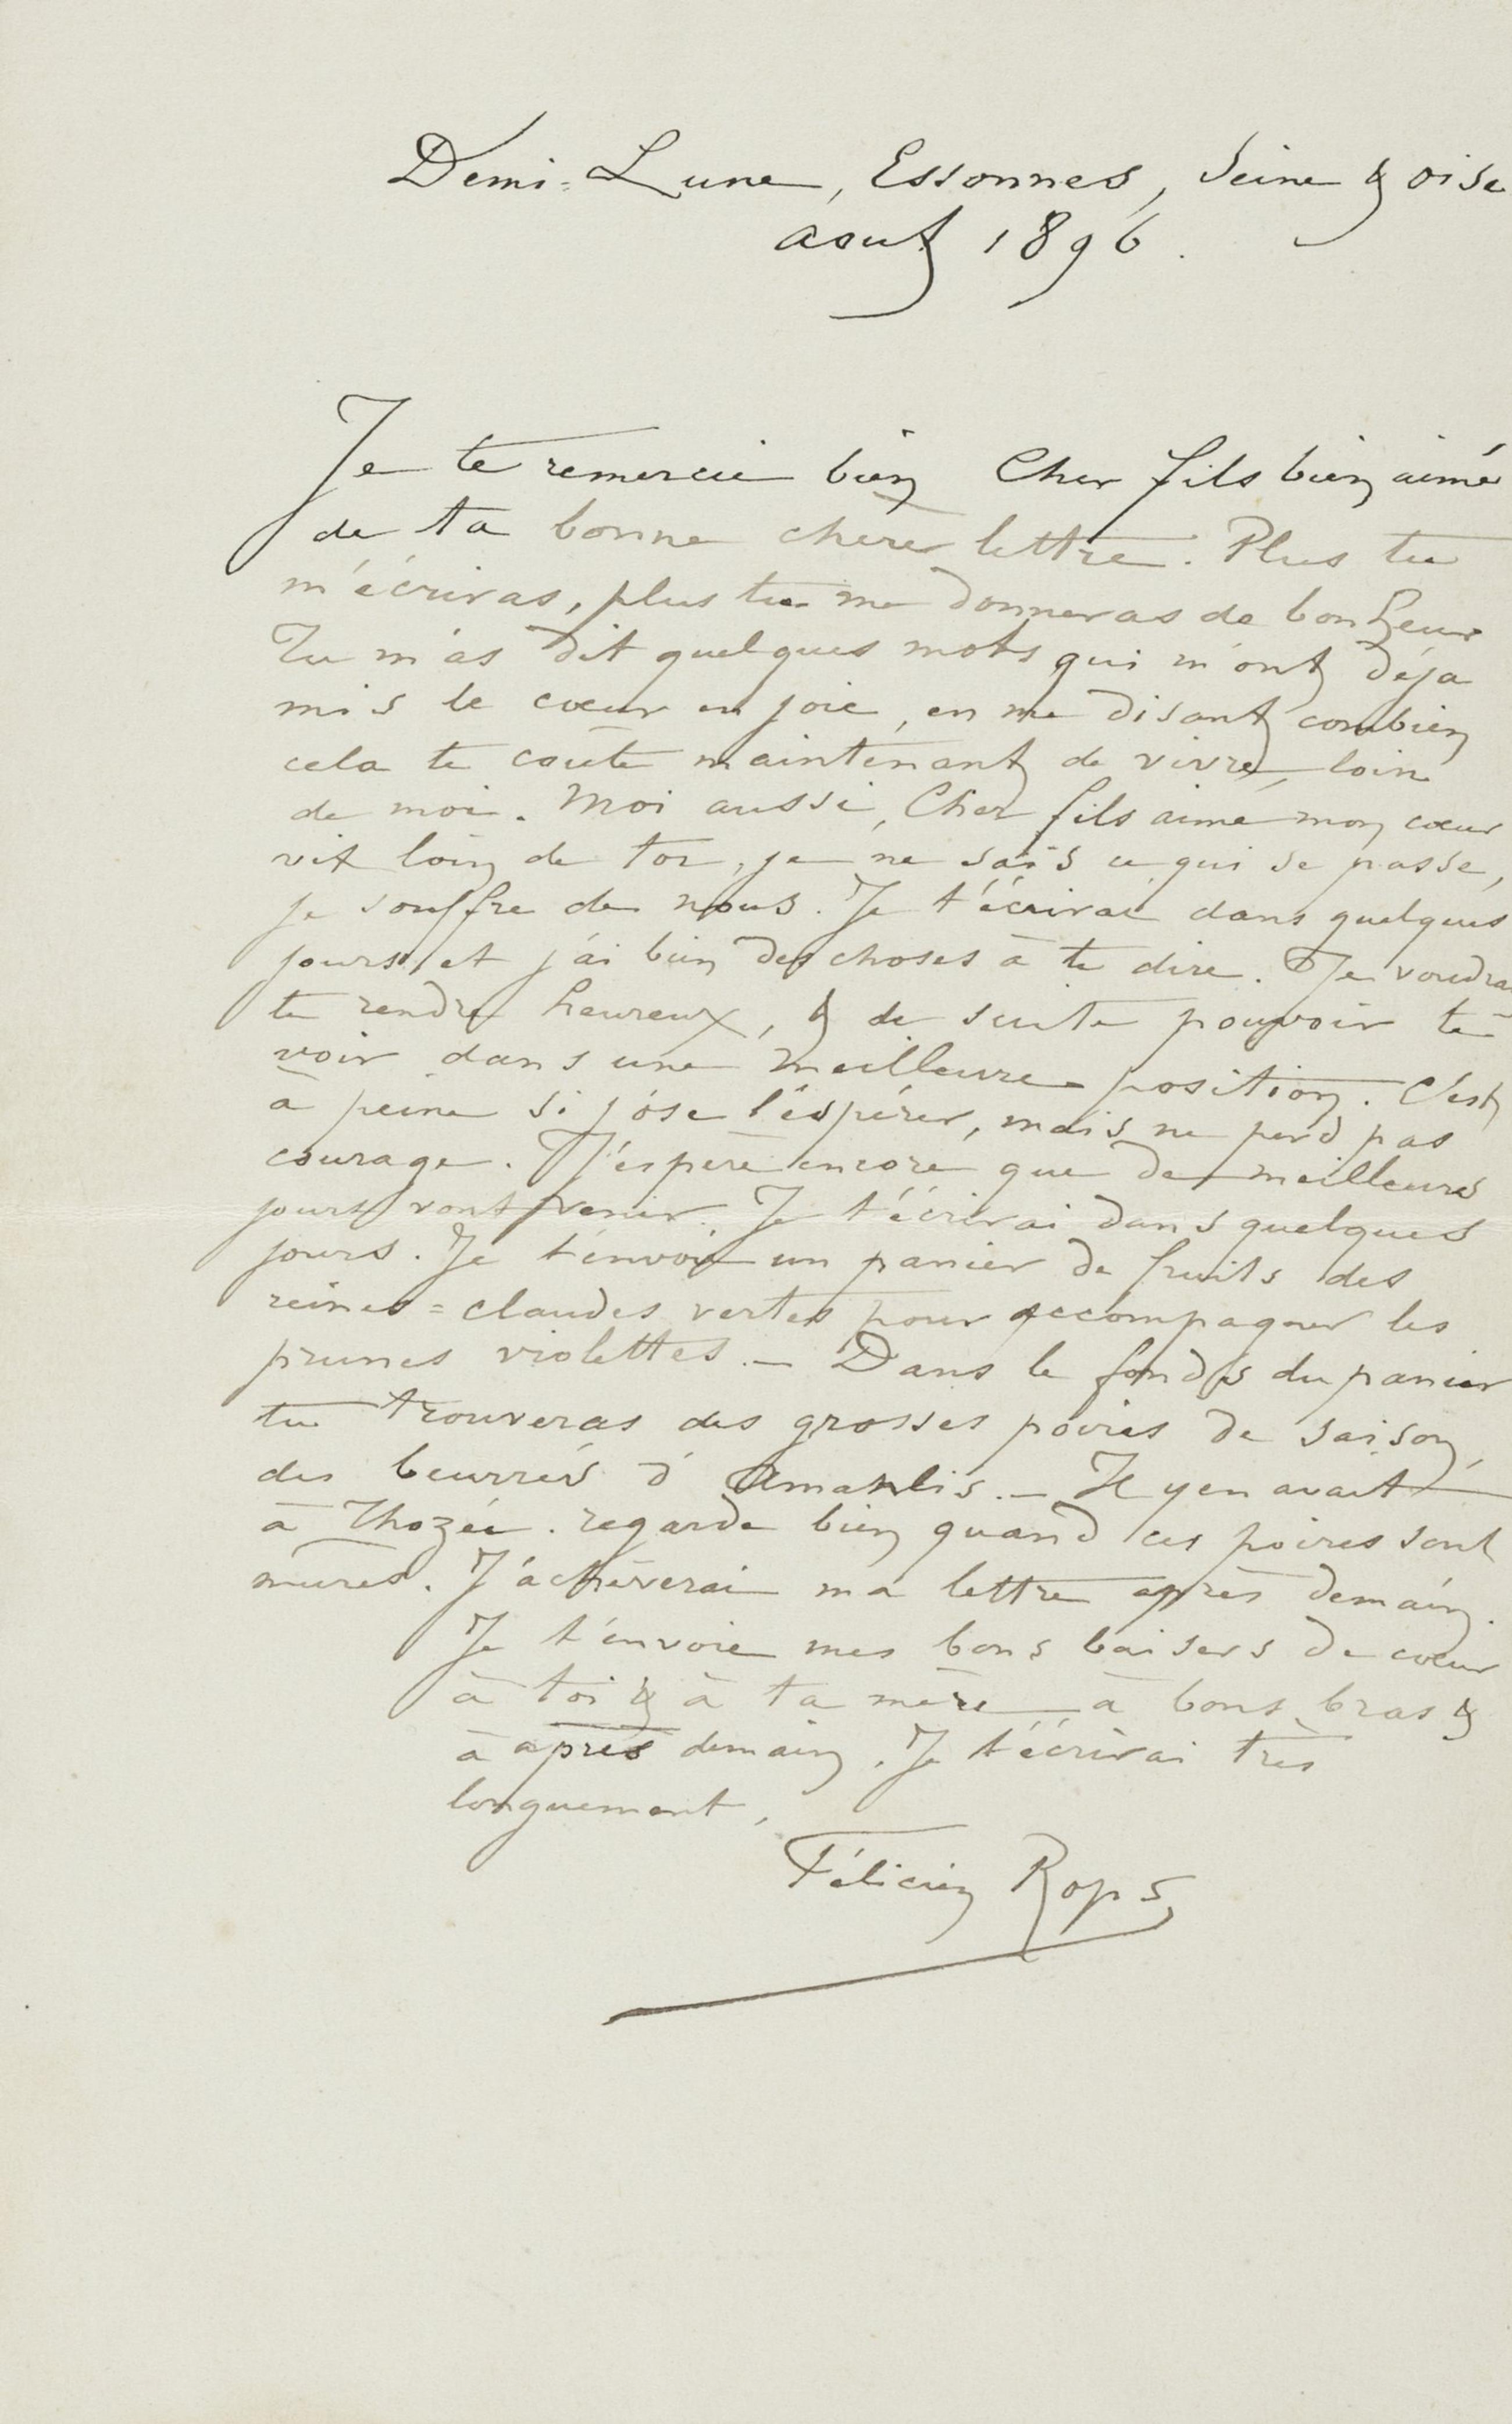 Demi=Lune, Essonnes, Seine & oise
aout 1896.
Je te remercie bien Cher fils bien aimé
de ta bonne chère lettre. Plus tu
m'écrivas, plus tu me donneras de bonheur
Tu m'as dit quelques mots qui m'ont déja
mis le cœur en joie, en me disant combien
cela te coute maintenant de vivre loin
de moi. Moi aussi, Cher fils aimé mon cœur
vit loin de toi, je ne sais ce qui se passe,
je souffre de nous. Je t'écrirai dans quelques
jours, et j'ai bien des choses à te dire. Je voudrai
te rendre heureux, & de suite pouvoir te
voir dans une meilleure position. C'est
à peine si j'ose l'éspérer, mais ne perd pas
courage. J'éspère encore que de meilleurs
jours vont venir. Je t'écrirai dans quelques
jours. Je t'envoie un panier de fruits des
reines=claudes vertes pour accompagner les
prunes violettes. — Dans le fonds du panier
tu trouveras des grosses poires de saison,
des beurrés d'Amanlis. — Il y en avait
à Thozée. regarde bien quand ces poires sont
mures. J'achèverai ma lettre après demain.
Je t'envoie mes bons baisers de cœur
à toi & à ta mère à bons bras &
à après demain. Je t'écrirai très
longuement,
Félicien Rops